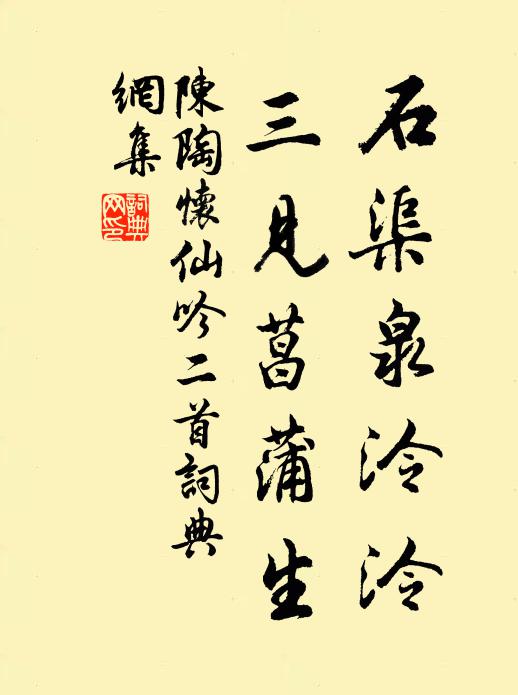 石渠泉泠泠
三見菖蒲生
陳陶懷仙吟二首詞典
網集
詞典
网印